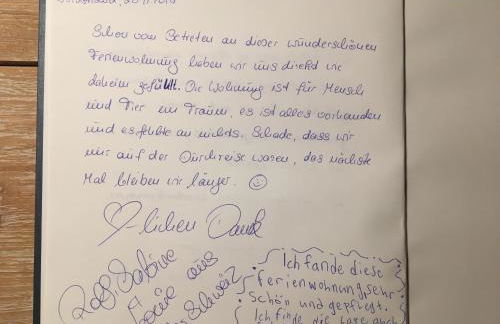 Schon vom Betreten an dieser wunderschönen
Ferienwohnung haben wir uns direkt wie
daheim gefühlt. Die Wohnung ist für Mensch
und Tier ein Traum, es ist alles vorhanden
und es fehlte an nichts. Schade, dass wir
nur auf der Durchreise waren, das nächste
Mal bleiben wir länger. ☺
♡-lichen Dank
Rolf, Sabine
aus
Schweiz
Ich fande diese
Ferienwohnung sehr
schön und gepflegt.
Ich finde die Lage auch